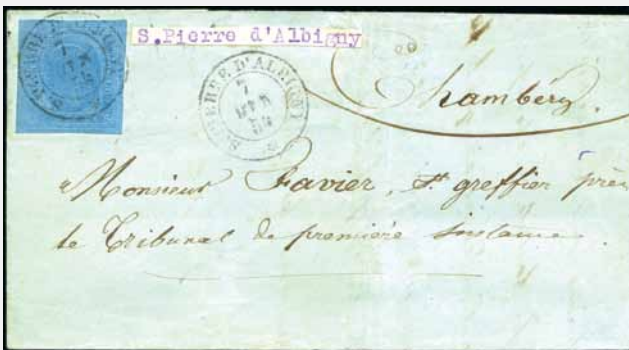 S.Pierre d'Albigny
S. PIERRE D'ALBIGNY
Chambéry.
Monsieur Favier, greffier près
le Tribunal de première instance